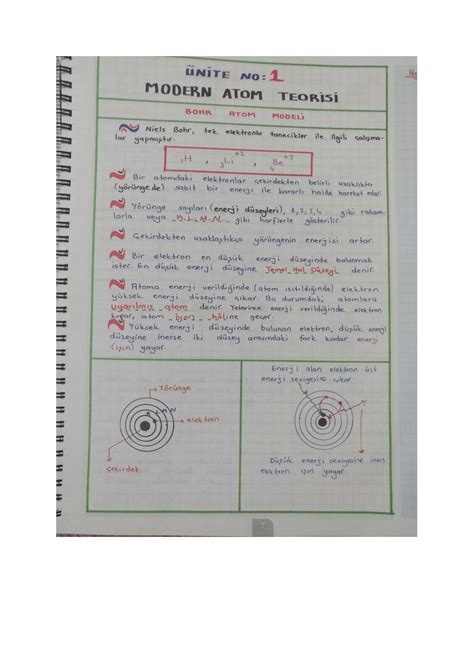 ÜNİTE NO: 1
MODERN ATOM TEORİSİ
BOHR ATOM MODELİ
Niels Bohr, tek elektronlu tanecikler ile ilgili çalışma-
lar yapmıştır.
₁H , ₃Li⁺² , ₄Be⁺³
Bir atomdaki elektronlar çekirdekten belirli uzaklıkta
(yörüngede) sabit bir enerji ile kararlı halde hareket eder.
Yörünge sayıları (enerji düzeyleri), 1,2,3,4... gibi rakam-
larla veya K,L,M,N gibi harflerle gösterilir.
Çekirdekten uzaklaştıkça yörüngenin enerjisi artar.
Bir elektron en düşük enerji düzeyinde bulunmak
ister. En düşük enerji düzeyine Temel Hal Düzeyi denir.
Atoma enerji verildiğinde (atom ısıtıldığında) elektron
yüksek enerji düzeyine çıkar. Bu durumdaki atomlara
Uyarılmış atom denir. Yeterince enerji verildiğinde elektron
kopar, atom iyon hâline geçer.
Yüksek enerji düzeyinde bulunan elektron, düşük enerji
düzeyine inerse iki düzey arasındaki fark kadar enerji
(ışın) yayar.
Yörünge
K L M N
elektron
Çekirdek.
Enerji alan elektron üst
enerji seviyesine çıkar.
Düşük enerji seviyesine inen
elektron ışın yayar.